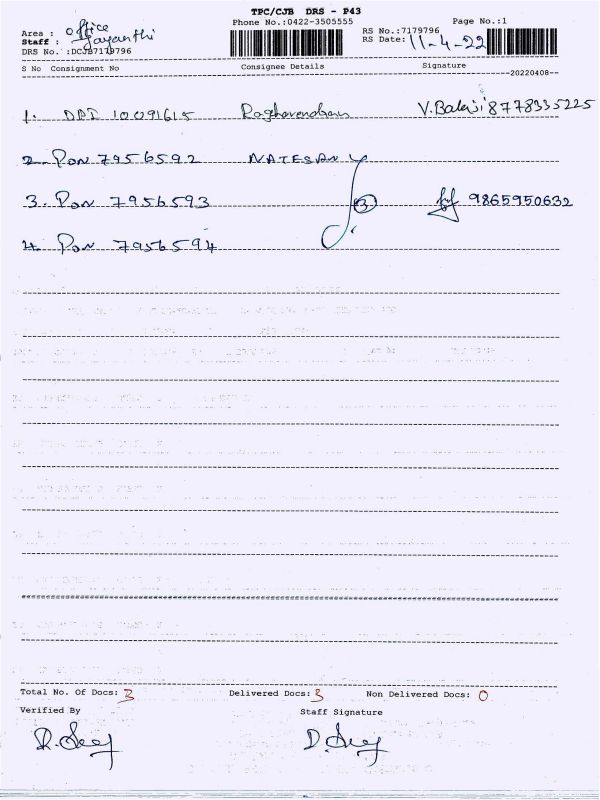 TPC/CJB DRS - P43
Phone No.:0422-3505555 Page No.:1
Area : Office RS No.:7179796
Staff : Jayanthi RS Date: 11-4-22
DRS No. :DCJB7179796
S No Consignment No Consignee Details Signature
--20220408--
1. DPI 10091615 Raghavendran V.Balaji 8778335225
2. PON 7956592 NATESAN
3. PON 7956593 3 9865950632
4. PON 7956594
Total No. Of Docs: 3 Delivered Docs: 3 Non Delivered Docs: 0
Verified By Staff Signature